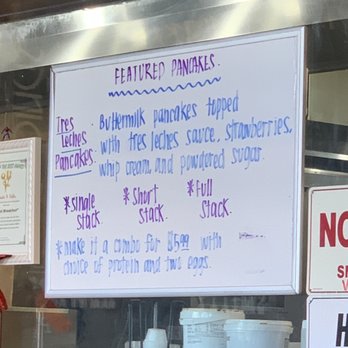 FEATURED PANCAKES.
Tres Leches Pancakes:
Buttermilk pancakes topped
with tres leches sauce, strawberries,
whip cream, and powdered sugar.
*single stack
*Short Stack.
*Full Stack.
*make it a combo for $5.99 with
choice of protein and two eggs.
NO